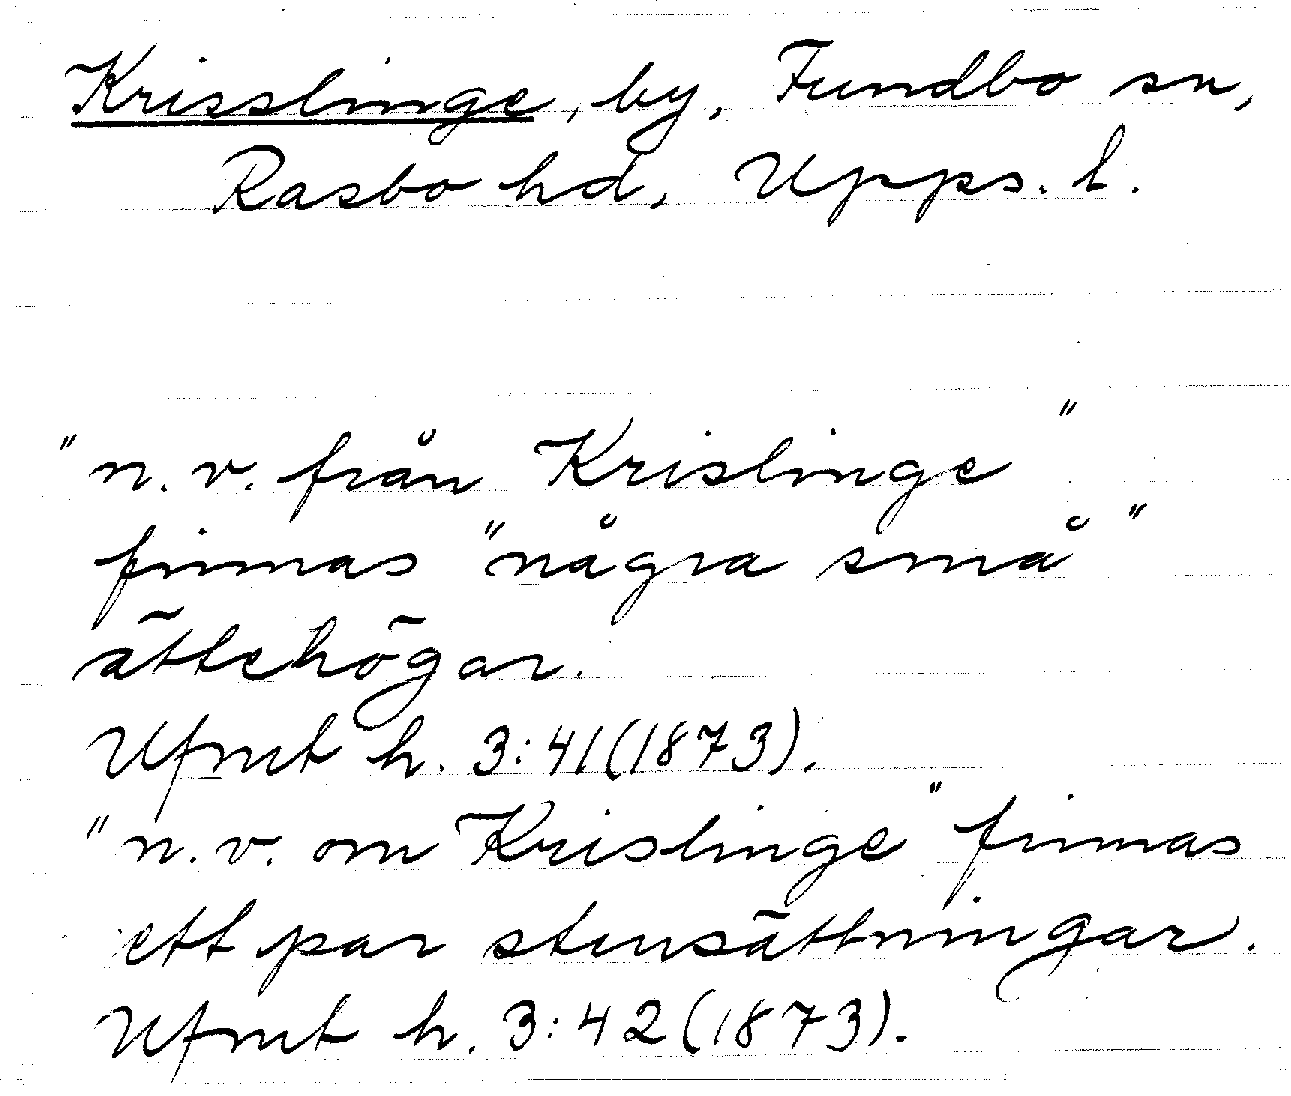 Krisslinge, by, Fundbo sn,
Rasbo hd, Upps. l.
"n.v. från Krislinge"
finnas "några små"
ättehögar.
Ufmt h. 3:41(1873).
"n.v. om Krislinge" finnas
ett par stensättningar.
Ufmt h. 3:42(1873).